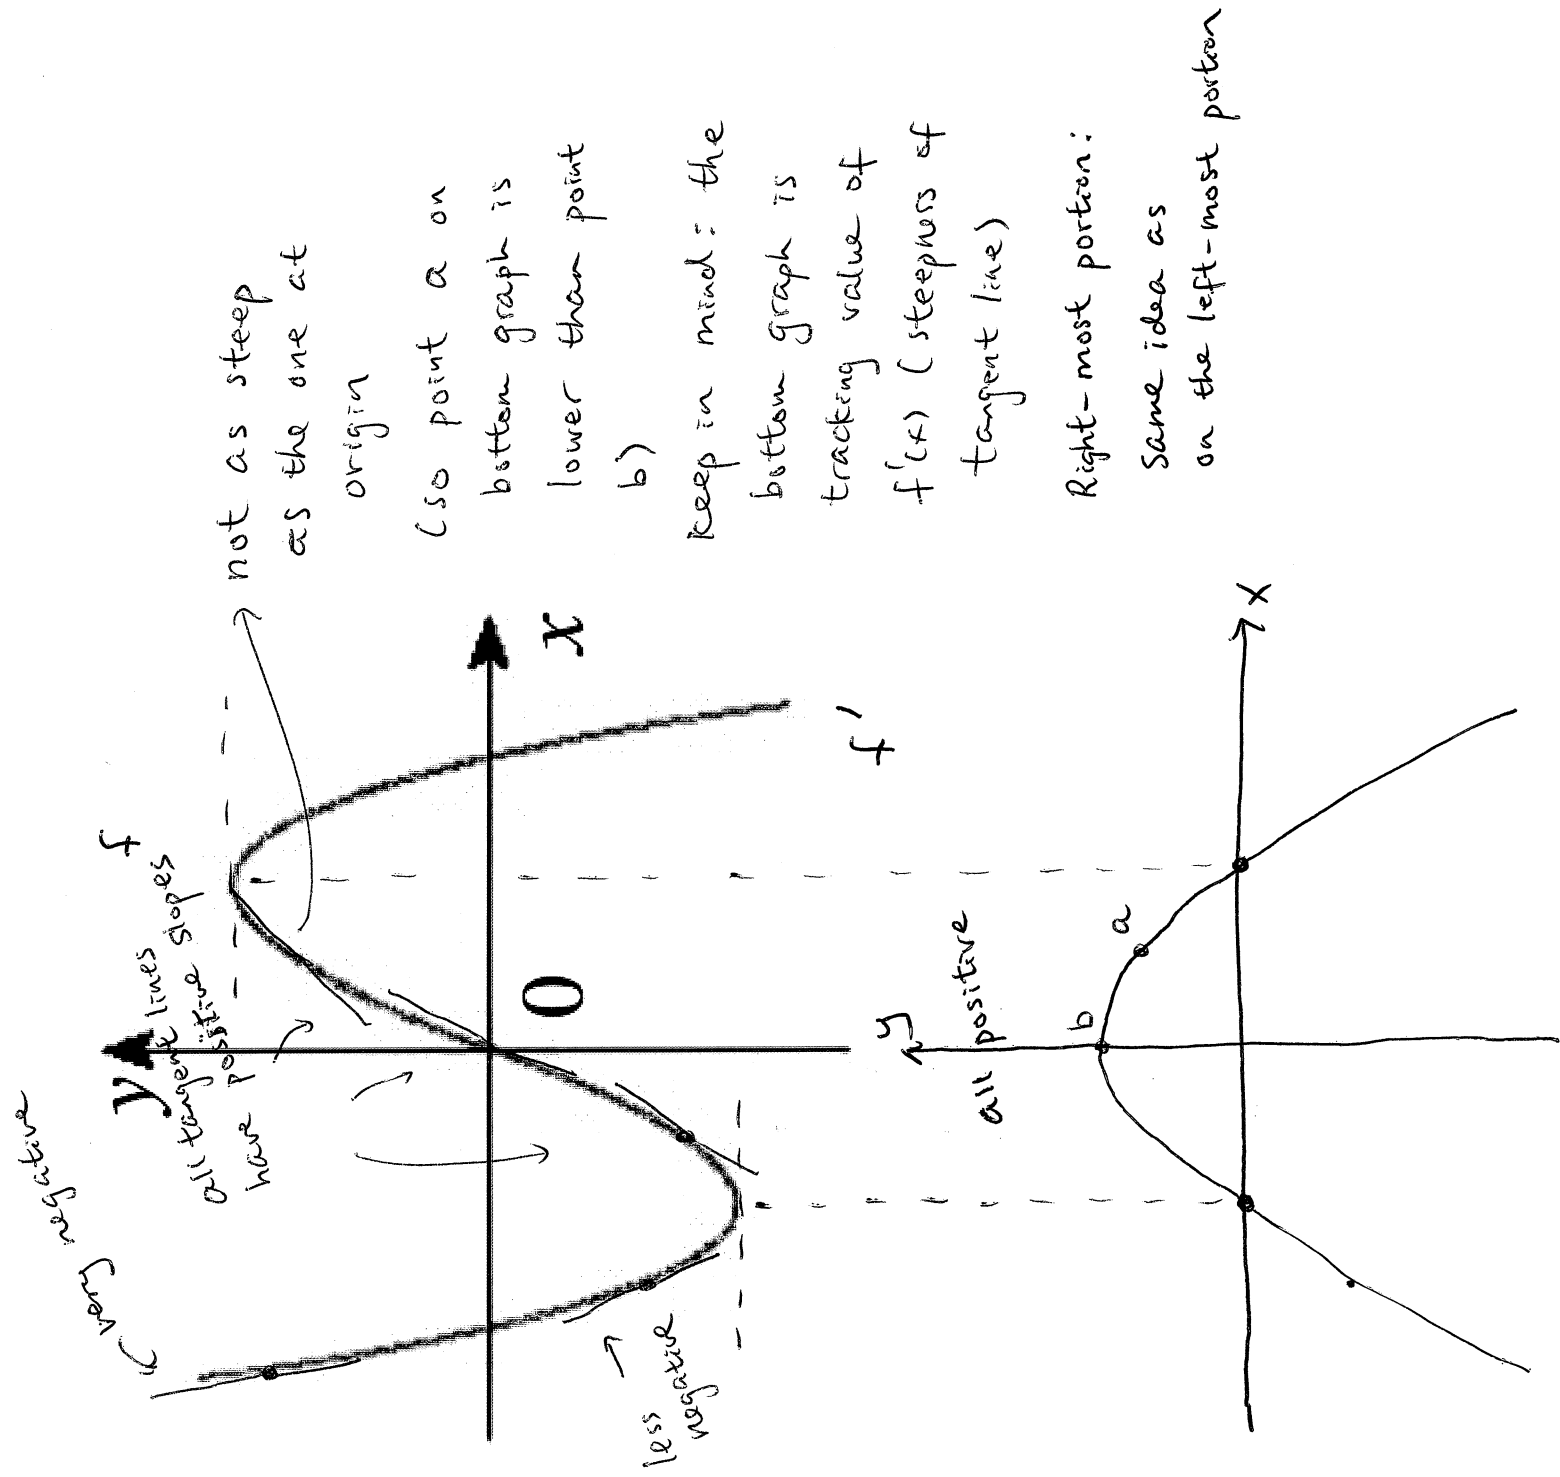 very negative
y
f
all tangent lines
have positive slopes
not as steep
as the one at
origin
(so point a on
bottom graph is
lower than point
b)
keep in mind: the
bottom graph is
tracking value of
f'(x) (steepness of
tangent line)
Right-most portion:
Same idea as
on the left-most portion
0
x
less
negative
f'
y
all positive
b
a
x